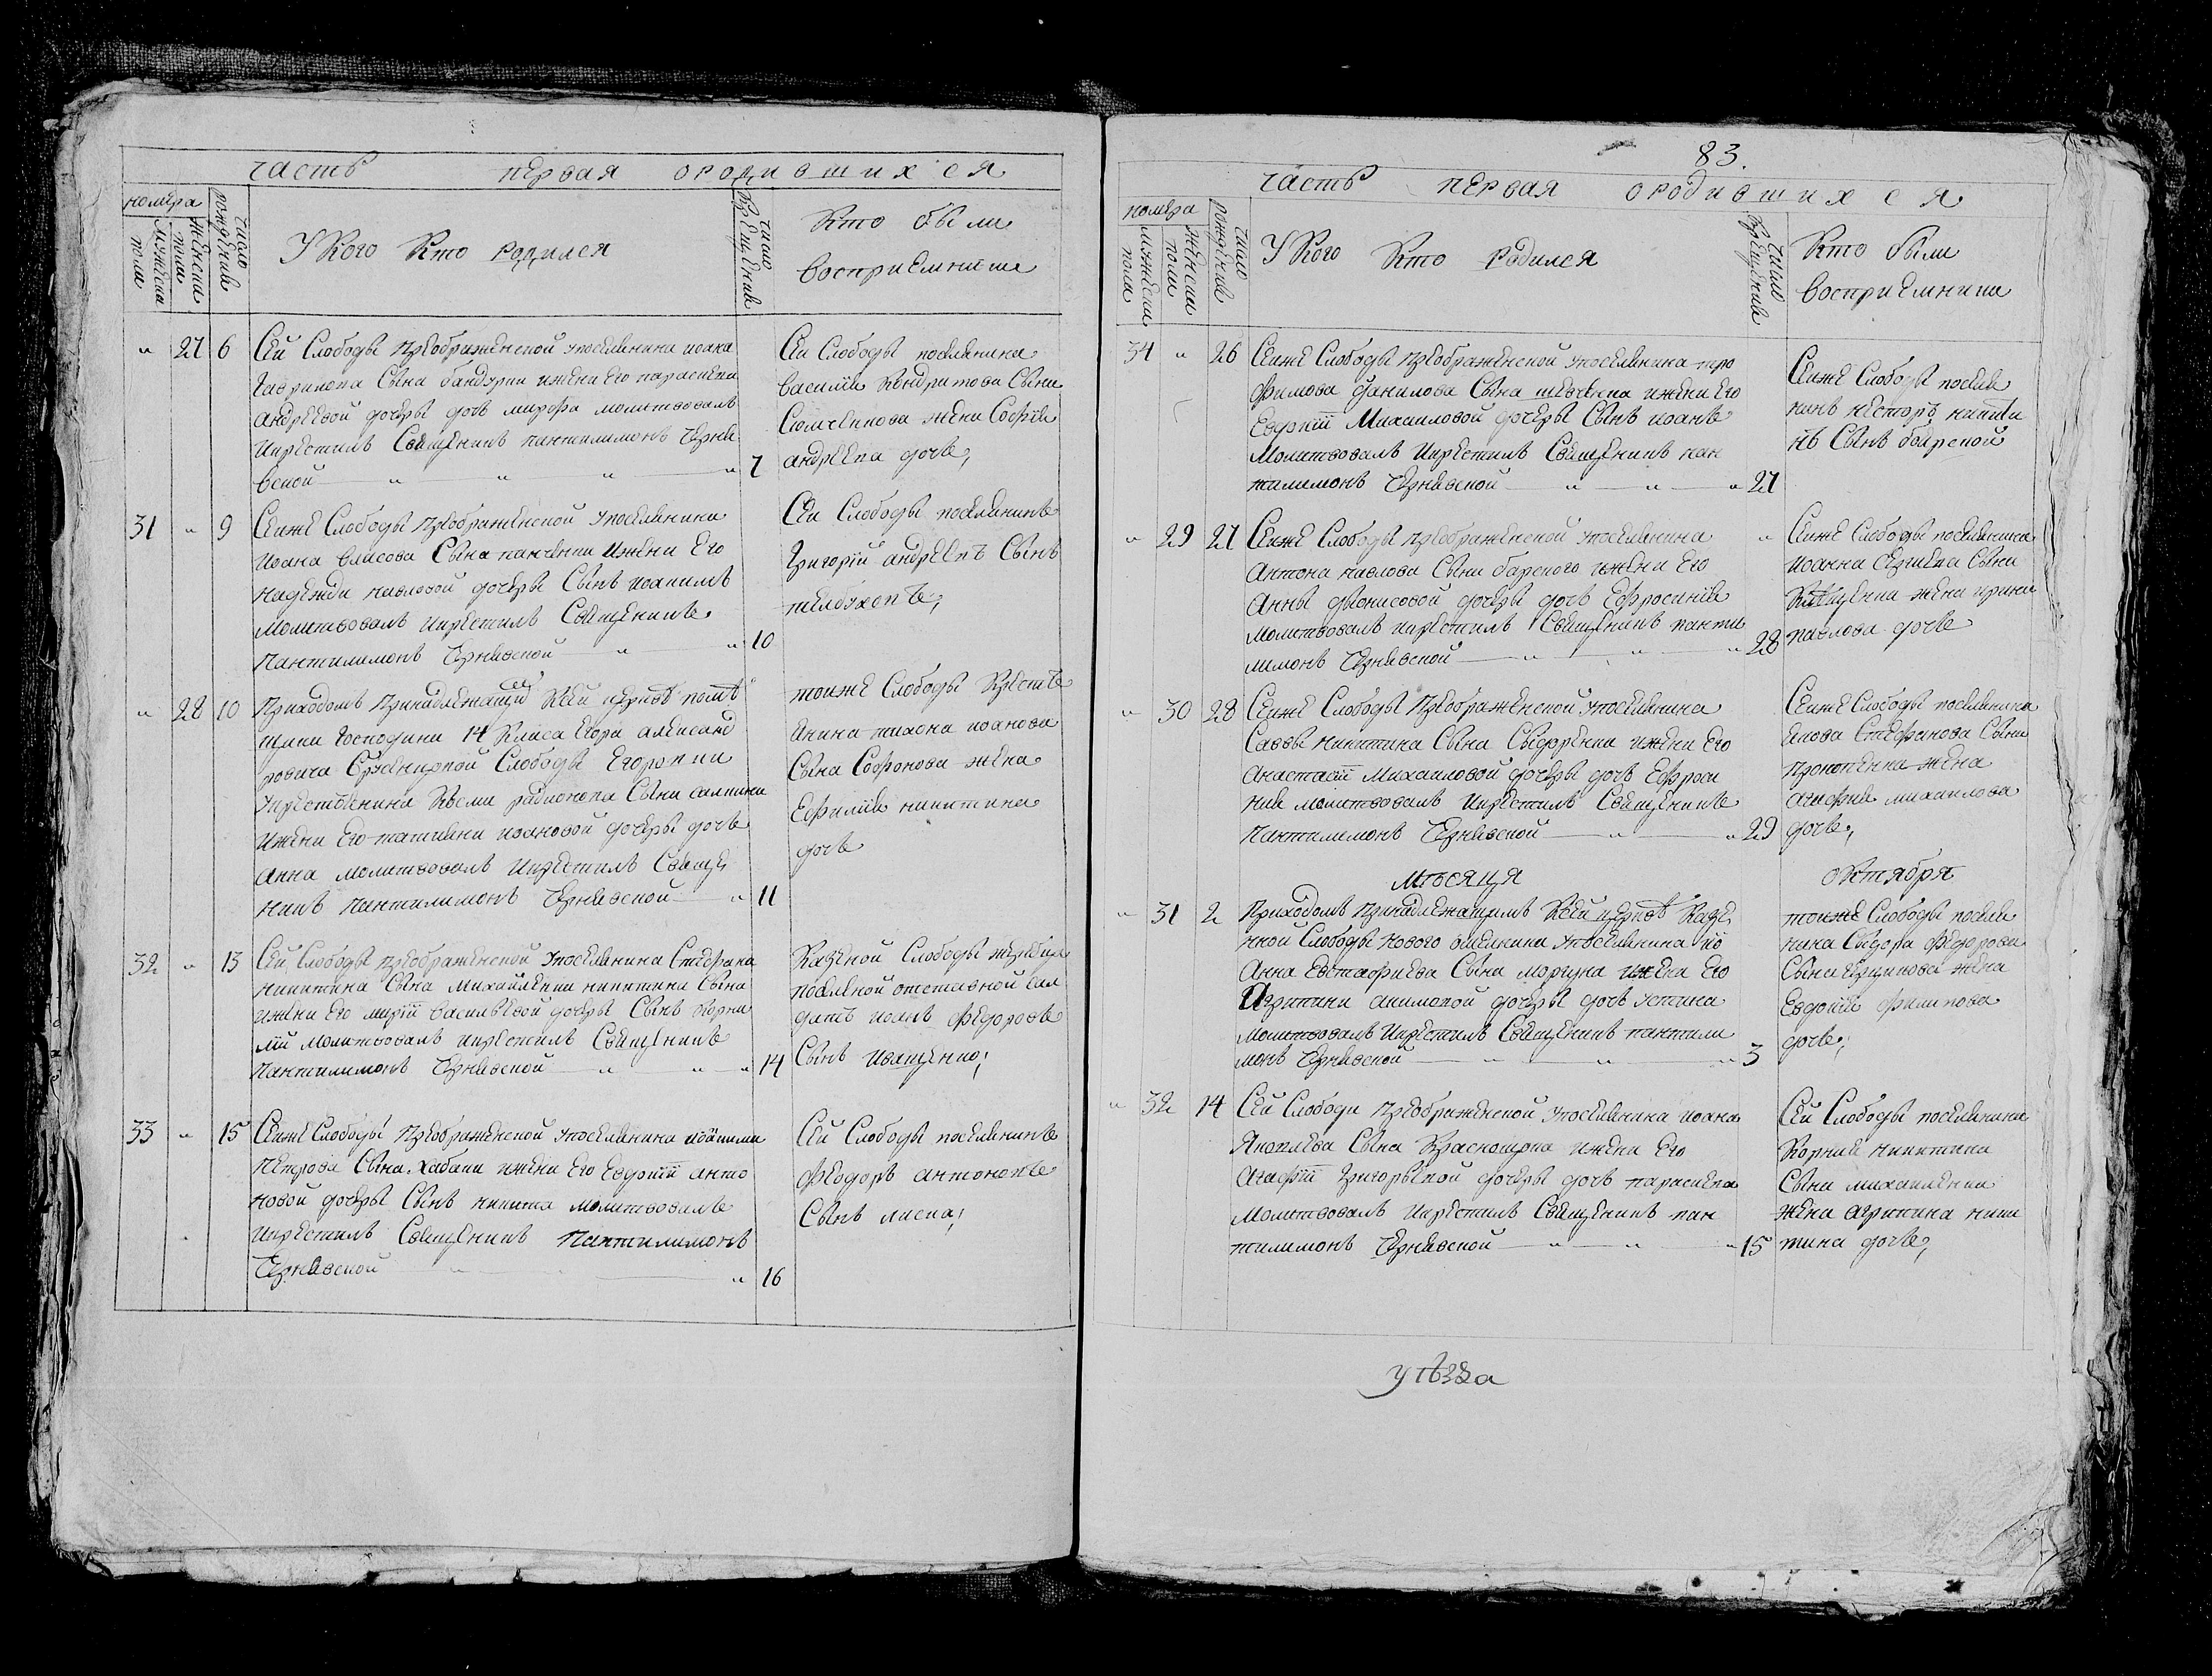 часть первая ородившихся
номера
мужеска пола
женска пола
число рождений
У Кого Кто родился
число крещений
Кто были
восприемники
" 27 6 Сей Слободы Преображенской упоселянина иоана
Гаврилова Сына бандурки ижени Его параскевы
андреевой дочеры дочь марфа молитвовалъ
икрестилъ Священикъ пантилимонъ Черня
вской " " " " 7
Сей Слободы поселянина
василия Кондратова Сына
жена София
андреева дочь,
31 " 9 Сеиже Слободы Преображенской упоселянина
иоана власова Сына панченка ижени Его
надежди павловой дочеры Сынъ иоакимъ
молитвовалъ икрестилъ Священикъ
Пантилимонъ Чернявской " " 10
Сей Слободы поселянинъ
Григорий андреевъ Сынъ
" 28 10 Приходомъ Принадлежащей Ксей церкве поме
щика Господина 14 Класа Егора александ
ровича Слободы Егоровки
укрестьянина Косми радионова Сына
ижени Его татияни иоановой дочеры дочь
анна молитвовалъ икрестилъ Свяще
никъ Пантилимонъ Чернявской " 11
тоиже Слободы Кресть
янина тихона иоанова
Сына Софонова жена
Ефимия никитина
дочь
32 " 13 Сей Слободы преображенской упоселянина Стефана
никитина Сына Михайленка никитина Сына
ижени Его марии васильевой дочеры Сынъ Корни
лий молитвовалъ икрестилъ Священикъ
Пантилимонъ Чернявской " " " 14
Казеной Слободы
отставной сал
датъ иоанъ Федоровъ
Сынъ иващенко;
33 " 15 Сеиже Слободы Преображенской упоселянина иоакима
Петрова Сына Хабаки ижени Его Евдокии анто
новой дочеры Сынъ никита молитвовалъ
икрестилъ Священикъ Пантилимонъ
Чернявской " " 16
Сей Слободы поселянинъ
Феодоръ антоновъ
Сынъ лиска;
83.
часть первая ородившихся
номера
мужеска пола
женска пола
число рождений
У Кого Кто родился
число крещений
Кто были
восприемники
34 " 26 Сеиже Слободы преображенской упоселянина тро
фимова данилова Сына шевченка ижени Его
Евдокии Михаиловой дочеры Сынъ иоанъ
Молитвовалъ икрестилъ Священикъ пан
тилимонъ Чернявской " " " 27
Сеиже Слободы поселя
нинъ несторъ никити
нъ Сынъ боярской
" 29 27 Сеиже Слободы преображенской упоселянина
Антона павлова Сына барского ижени Его
Анны дионисовой дочеры дочь Ефросиния
молитвовалъ икрестилъ Священикъ панти
лимонъ Чернявской " " " 28
" Сеиже Слободы поселянина
иоанна Сергиева Сына
жена ирина
павлова дочь
" 30 28 Сеиже Слободы Преображенской упоселянина
Саввы никитина Сына Сыдоренка ижени Его
анастасии Михаиловой дочеры дочь Ефроси
ния молитвовалъ икрестилъ Священикъ
Пантилимонъ Чернявской " " 29
Сеиже Слободы поселянина
Якова Стефанова Сына
Прокопенка жена
агафия михаилова
дочь;
Месяця октября
" 31 2 Приходомъ Принадлежащимъ Ксей церкве Казе
нной Слободы Нового упоселянина ио
Анна Евстафиева Сына Моргуна ижени Его
Агрипини акимовой дочеры дочь устина
молитвовалъ икрестилъ Священикъ пантили
монъ Чернявской " " " 3
тоиже Слободы поселя
нина Сыдора Федорова
Сына жена
Евдокия филипова
дочь;
" 32 14 Сей Слободы Преображенской упоселянина иоана
Яковлева Сына Красношпка ижени Его
Агафии Григорьевой дочеры дочь параскева
молитвовалъ икрестилъ Священикъ пан
тилимонъ Чернявской " " " 15
Сей Слободы поселянина
Корния никитина
Сына михаиленка
жена агрипина ники
тина дочь;
уезда